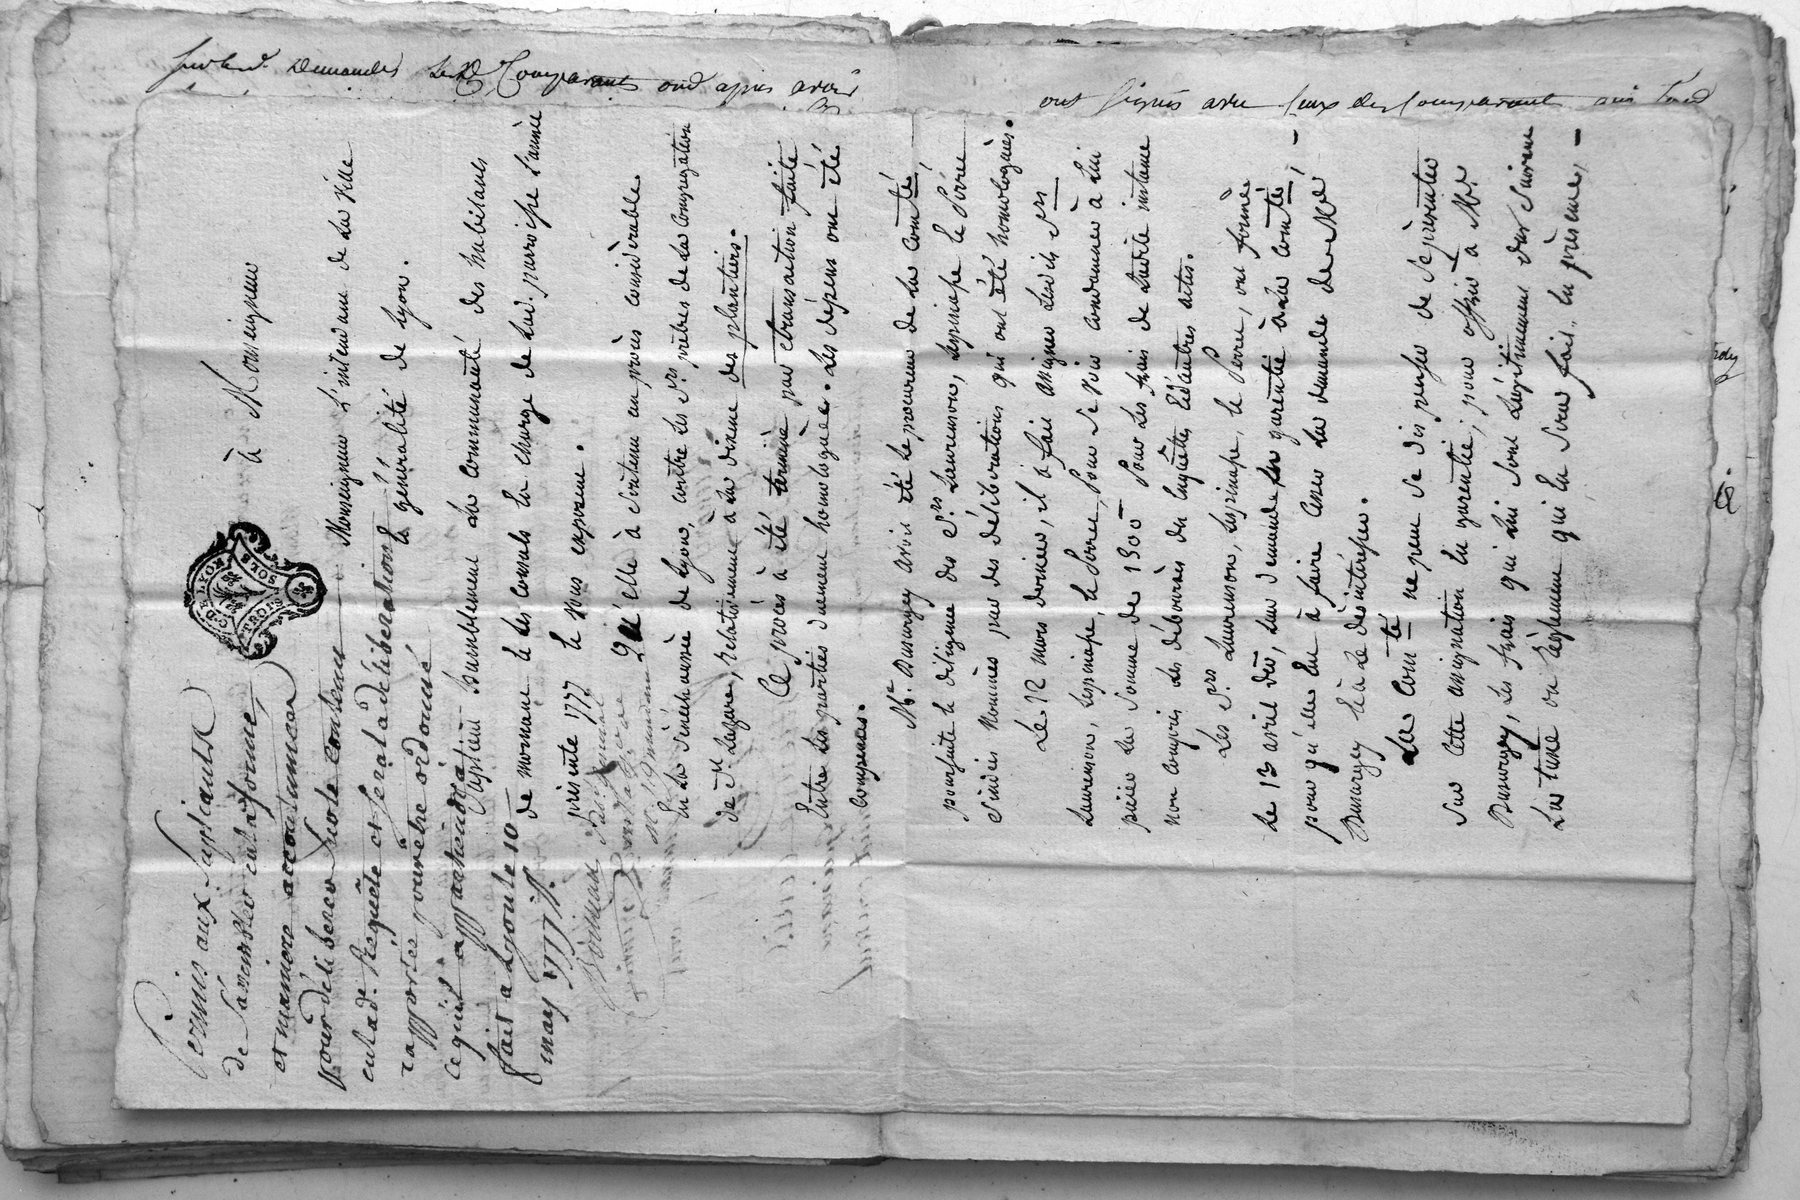 sur led. demandes lesd Comparants ond apres avoir
ont signés avec ceux des Comparants qui l'ond
LYON ROYAL
TROIS SOLS
à Monseigneur
Monseigneur L'intendant de La Ville
& généralité de Lyon.
Suplient humblement La Communauté des habitants
de mornant & Les Consuls En charge de Lad. parroisse L'année
présente 1777 & Vous exposent.
qu'elle à Soutenu un procès considérable.
En La Sénéchaussée de Lyon, contre Les Srs prêtres de La Congrégation
de St Lazare, relativement à La dixme des plantiers.
Ce procès à été terminé par transaction faite
Entre Les parties duement homologuée. Les dépens ont été
Compensés.
Me. Dusurgey avoit été Le procureur de La Comté,
poursuite & diligence des Srs Laurenson, Lespinasse & Serre
sindics Nommés par des délibérations qui ont été homologuées.
Le 12 mars dernier, il à fait assigner Lesdits Srs
Laurenson, Lespinasse, & Serre, Pour se Voir condamner à Lui
païer La Somme de 1500 Pour Les frais de Ladite instance
non compris Les déboursés des Enquêttes Et d'autres actes.
Les Srs Laurenson, Lespinasse, & Serre, ont formé
Le 13 avril dér, Leur demande En garentie à La Comté, -
pour qu'elle Eut à faire Cesser La demande de Me
Dusurgey & à Le désintéresser.
La Comté ne peut se dispenser de se présenter
sur Cette assignation En garentie; pour offrir à Me
Dusurgey, Les frais qui Lui sont Légitimement dus suivant
La taxe ou règlement qui En Sera fait. La présente, -
Permis aux Supliants
de S'assembler en la forme
et maniere accoutumées
pour délibérer sur le contenu
en lad. Requête et sera la déliberation
rapportée pour être ordonné
ce qu'il appartiendra
fait a Lyon le 10
may 1777.